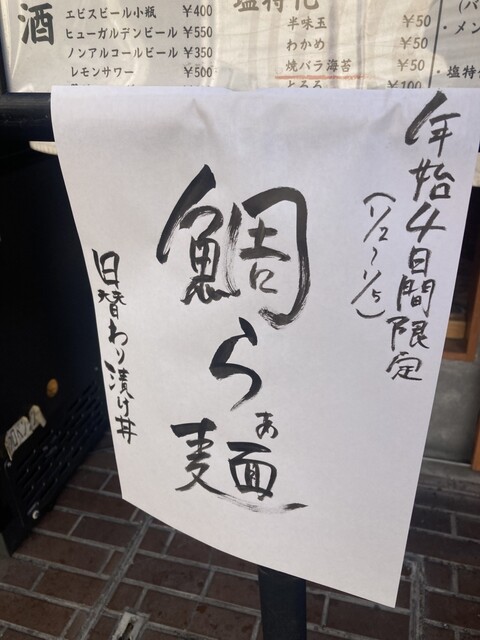 酒
エビスビール小瓶 ¥400
ヒューガルデンビール ¥550
ノンアルコールビール ¥350
レモンサワー ¥500
塩特化
半味玉 ¥50
わかめ ¥50
焼バラ海苔 ¥50
とろろ ¥100
・メン
・塩特
年始4日間限定
(1/2~1/5)
鯛らぁ麺
日替わり漬け丼